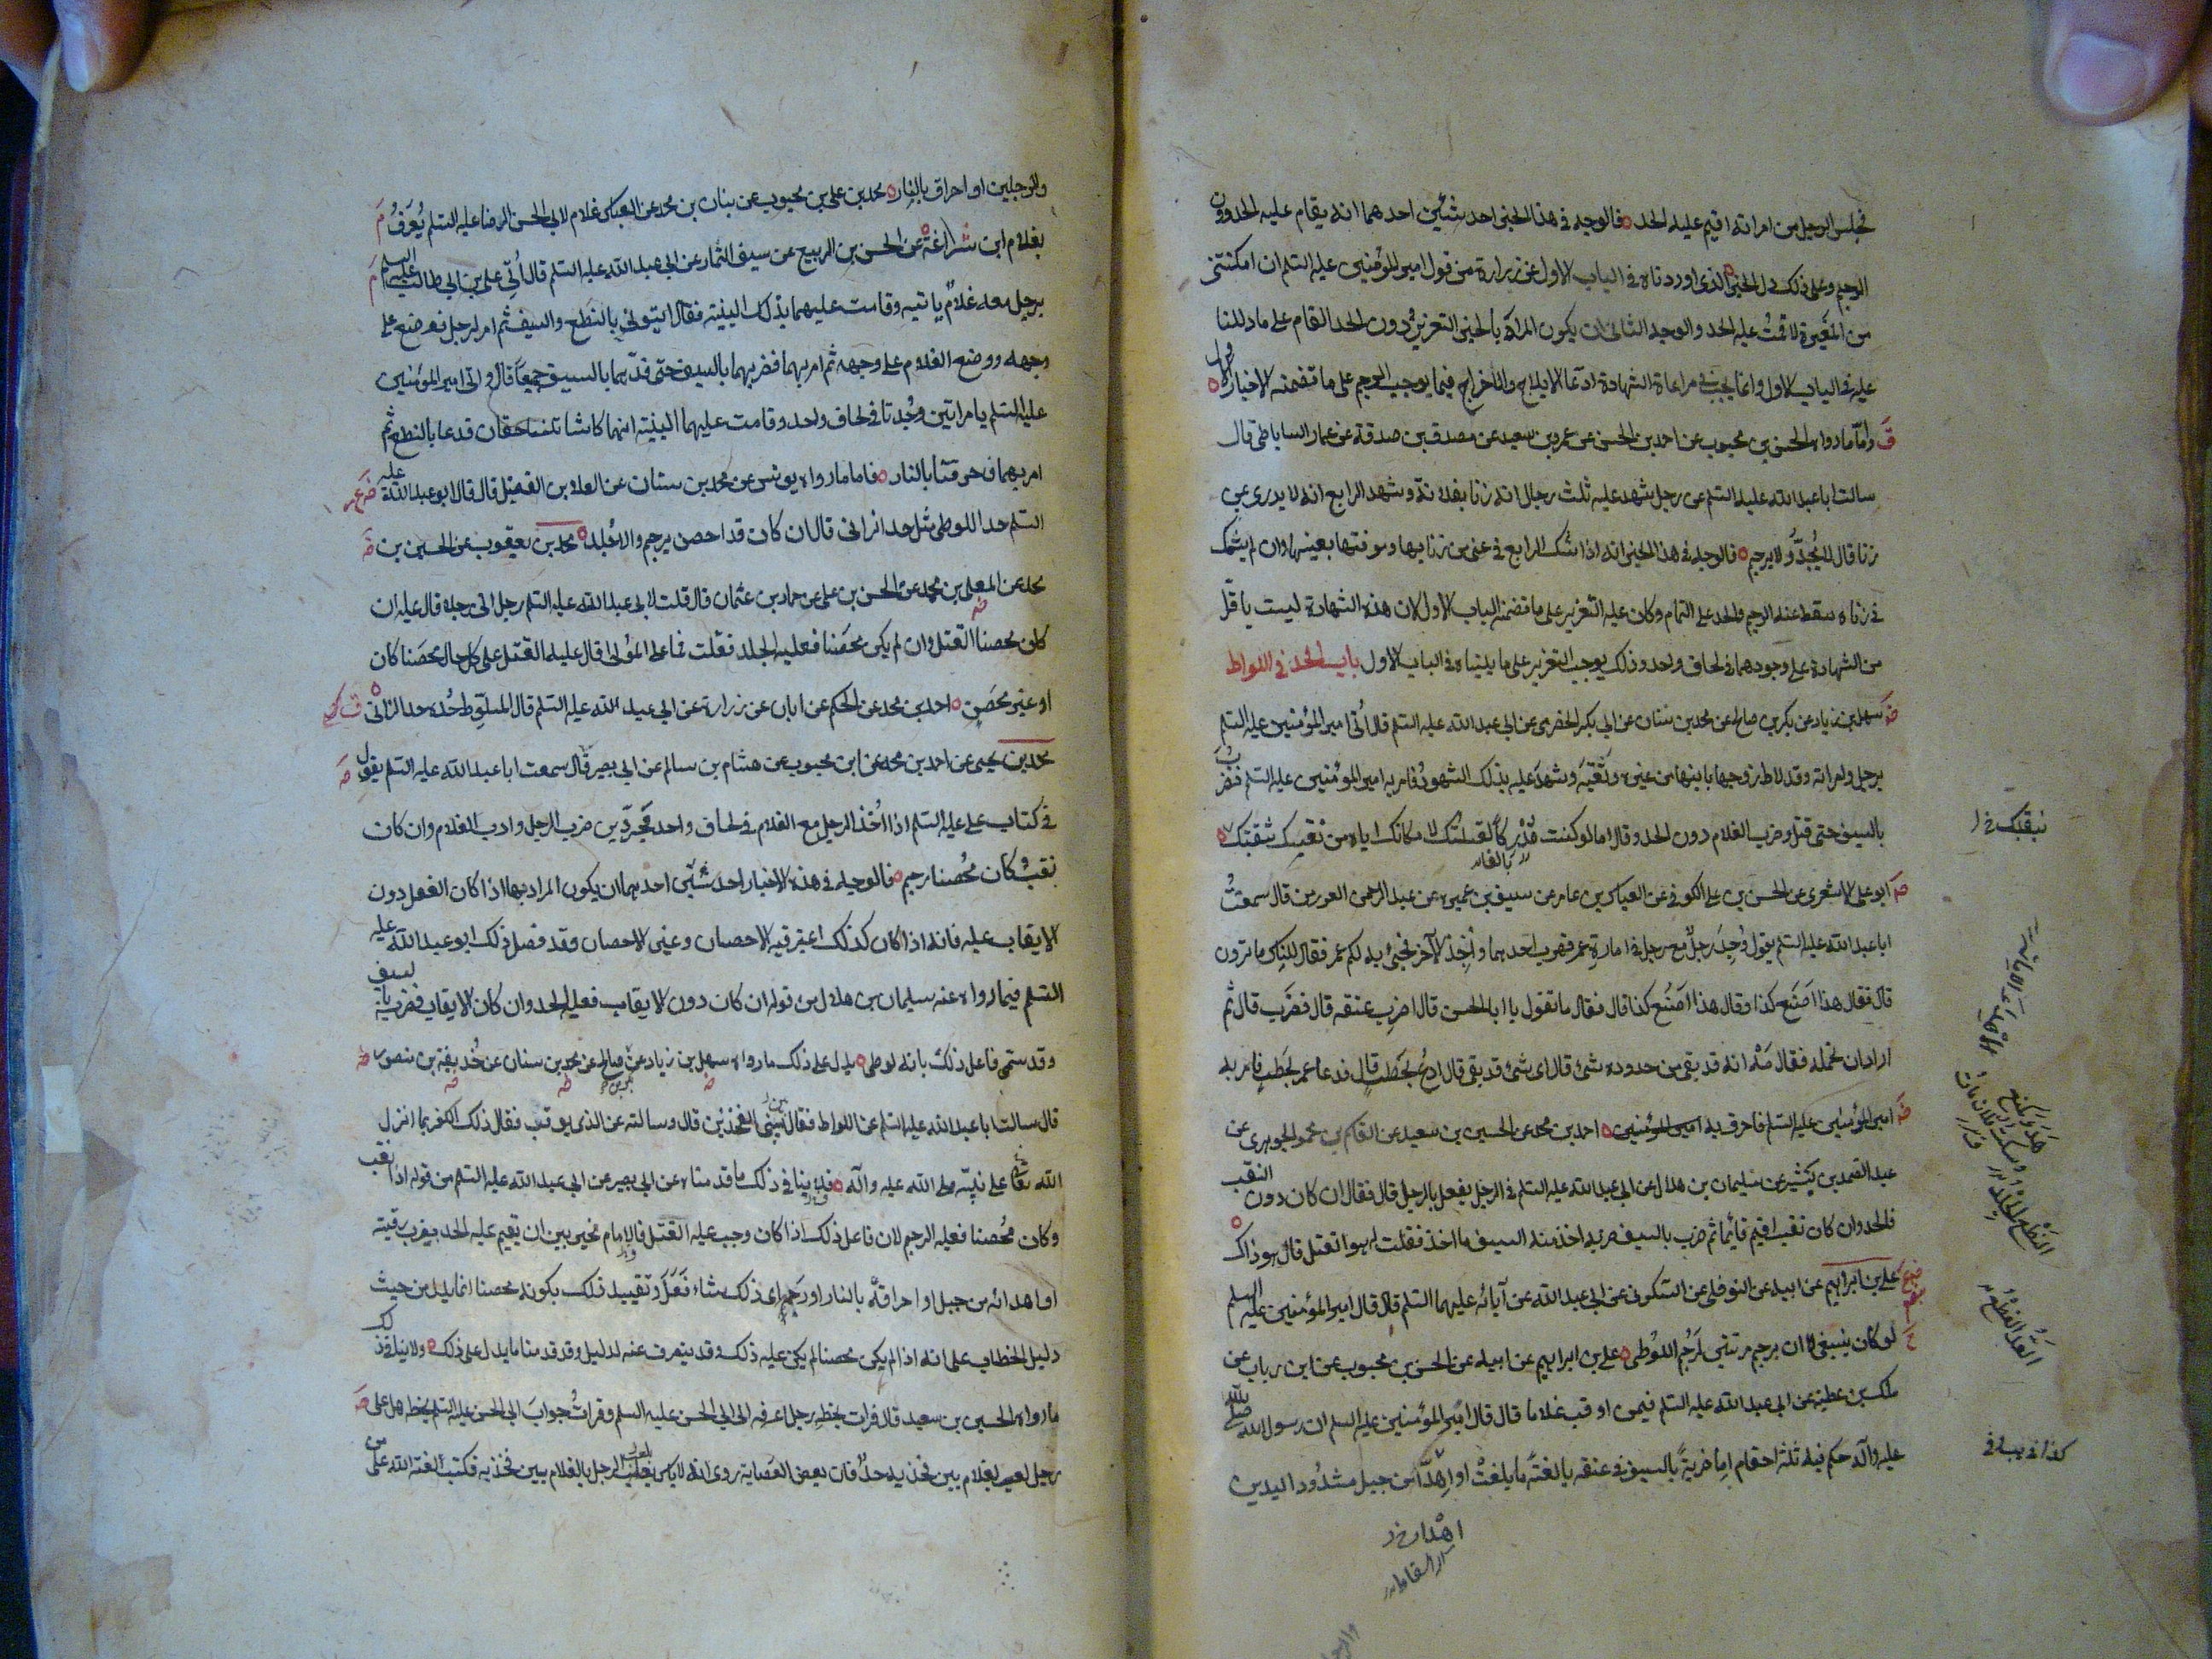 فجلس الرجل من امراته اقيم عليه الحد فالوجه في هذا الخبر احد شيئين احدهما انه يقام عليه الحد دون
الرجم وعلى ذلك دل الخبر الذي اوردناه في الباب الاول عن زرارة من قول امير المؤمنين عليه السلم ان امكنتني
من المغيرة لاقمت عليه الحد والوجه الثاني ان يكون المراد بالخبر التعزير دون الحد التام على ما دللنا
عليه في الباب الاول وانما يجب في مراعاة الشهادة ادعا الايلاج والاخراج فيما يوجب الرجم على ما تضمنه الاخبار الاول
واما ما رواه الحسن بن محبوب عن احمد بن الحسن عن عمرو بن سعيد عن مصدق بن صدقة عن عمار الساباطي قال
سالت ابا عبد الله عليه السلم عن رجل شهد عليه ثلث رجال انه زنا بفلانة وشهد الرابع انه لا يدري بمن
زنا قال لا يحد ولا يرجم فالوجه في هذا الخبر انه اذا شك الرابع في عين من زنا بها ومعرفتها بعينها وان لم يشك
في زناه سقط عنه الرجم والحد على التمام وكان عليه التعزير على ما تضمنه الباب الاول لان هذه الشهادة ليست باقل
من الشهادة على وجودهما في لحاف واحد وذلك يوجب التعزير على ما بيناه في الباب الاول باب الحد في اللواط
سهل بن زياد عن بكر بن صالح عن محمد بن سنان عن ابي بكر الحضرمي عن ابي عبد الله عليه السلم قال اُتي امير المؤمنين عليه السلم
برجل وامراته وقد لاط زوجها بابنها من غيره وثقبه وشهد عليه بذلك الشهود فامر به امير المؤمنين عليه السلم فضرب
بالسيف حتى قتل وضرب الغلام دون الحد وقال اما لو كنت مدركا لقتلتك لا مكانك اياه من نفسك ثقبك
ابو علي الاشعري عن الحسن بن علي الكوفي عن العباس بن عامر عن سيف بن عميره عن عبد الرحمن العرزمي قال سمعتُ
ابا عبد الله عليه السلم يقول وُجِدَ رجلٌ مع رجل في امارة عمر فهرب احدهما واُخِذ الآخر فجئ به الى عمر فقال للناس ما ترون
قال فقال هذا اصنَع كذا وقال هذا اصنَع كذا قال فقال ما تقول يا ابا الحسن قال اضرب عنقه قال فضرب قال ثم
اراد ان يحمله فقال مَهْ انه قد بقي من حدوده شئ قال اى شئ قد بقي قال ادع بحطب قال فدعا عمر بحطب فامر به
امير المؤمنين عليه السلم فاحرق به احمد بن محمد عن الحسين بن سعيد عن القاسم بن محمد الجوهري عن
عبد الصمد بن بشير عن سليمان بن هلال عن ابي عبد الله عليه السلم في الرجل يفعل بالرجل قال فقال ان كان دون الثقب
فالحد وان كان ثقب اقيم قائما ثم ضرب بالسيف ضربة اخذ منه السيف ما اخذ فقلت له هو القتل قال هو ذاك
علي بن ابراهيم عن ابيه عن النوفلي عن السكوني عن ابي عبد الله عن آبائه عليهما السلم قال قال امير المؤمنين عليه السلم
لو كان ينبغي لا ان يرجم مرتين لرُجم اللوطي علي بن ابراهيم عن ابيه عن الحسن بن محبوب عن ابن رياب عن
ملك بن عطية عن ابي عبد الله عليه السلم فيمن اوقب غلاما قال قال امير المؤمنين عليه السلم ان رسول الله صلى الله
عليه وآله حكم فيه ثلثة احكام اما ضربة بالسيف في عنقه بالغة ما بلغت او اهدا من جبل مشدود اليدين
والرجلين او احراق بالنار محمد بن علي بن محبوب عن بنان بن محمد عن العباس غلام لابي الحسن الرضا عليه السلم يُعرَفُ
بغلام ابن شراعة عن الحسن بن الربيع عن سيف التمار عن ابي عبد الله عليه السلم قال اُتِيَ علي بن ابي طالب عليه السلم
برجل معه غلامٌ ياتيه وقامت عليهما بذلك البينة فقال ايتوني بالنطع والسيف ثم امر بالرجل فوضع على
وجهه ووضع الغلام على وجهه ثم امر بهما فضربهما بالسيف حتى قدّهما بالسيف جميعا قال واتي امير المؤمنين
عليه السلم بامراتين وُجدتا في لحاف واحد وقامت عليهما البينة انهما كانتا تتساحقان فدعا بالنطع ثم
امر بهما فاحرقتا بالنار فاما ما رواه يونس عن محمد بن سنان عن العلا بن الفضيل قال قال ابو عبد الله عليه
السلم حد اللوطي مثل حد الزاني قال ان كان قد احصن يرجم والا جُلد محمد بن يعقوب عن الحسين بن
محمد عن المعلى بن محمد عن الحسن بن علي عن حماد بن عثمان قال قلت لابي عبد الله عليه السلم رجل اتى رجلا قال عليه ان
كان محصنا القتل وان لم يكن محصنا فعليه الجلد فقلت فما على المؤتى قال عليه القتل على كل حال محصنا كان
او غير محصن احمد بن محمد عن الحكم عن ابان عن زرارة عن ابي عبد الله عليه السلم قال المتلوط حُده حد الزاني
محمد بن يحيى عن احمد بن محمد عن ابن محبوب عن هشام بن سالم عن ابي بصير قال سمعت ابا عبد الله عليه السلم يقول
في كتاب علي عليه السلم اذا اُخذ الرجل مع الغلام في لحاف واحد مجردين ضرب الرجل وادب الغلام وان كان
ثقب وكان مُحصنا رجم فالوجه في هذه الاخبار احد شيئين احدهما ان يكون المراد بها اذا كان الفعل دون
الايقاب عليه فانه اذا كان كذلك اعتبر فيه الاحصان وغير الاحصان وقد فصل ذلك ابو عبد الله عليه
السلم فيما رواه عنه سليمان بن هلال من قوله ان كان دون الايقاب فعليه الحد وان كان الايقاب فضربة بالسيف
وقد سمى فاعل ذلك بانه لوطي يدل على ذلك ما رواه سهل بن زياد عن بكر بن صالح عن محمد بن سنان عن حُذيفة بن منصور
قال سالت ابا عبد الله عليه السلم عن اللواط فقال بين الفخذين قال وسالته عن الذي يوقب فقال ذلك الكفر بما انزل
الله تعالى على نبيه صلى الله عليه وآله فلا ينافي ذلك ما قدمناه عن ابي بصير عن ابي عبد الله عليه السلم من قوله اذا ثقب
وكان مُحصنا فعليه الرجم لان فاعل ذلك اذا كان وجب عليه القتل فالامام مخير بين ان يقيم عليه الحد بضرب رقبته
او اهدائه من جبل او احراقه بالنار او رَجمه اي ذلك شاء فَعَلَ وتقييد ذلك بكونه محصنا انما يدل من حيث
دليل الخطاب على انه اذا لم يكن محصنا لم يكن عليه ذلك وقد ينصرف عنه لدليل وقد قدمنا ما يدل على ذلك ولا ينافي ذلك
ما رواه الحسين بن سعيد قال قرات بخط رجل اعرفه الى ابي الحسن عليه السلم وقرات جواب ابي الحسن عليه السلم بخطه هل على
رجل لعب بغلام بين فخذيه حدٌ فان بعض العصابة روى انه لا باس بلعب الرجل بالغلام بين فخذيه فكتب لعنة الله على من